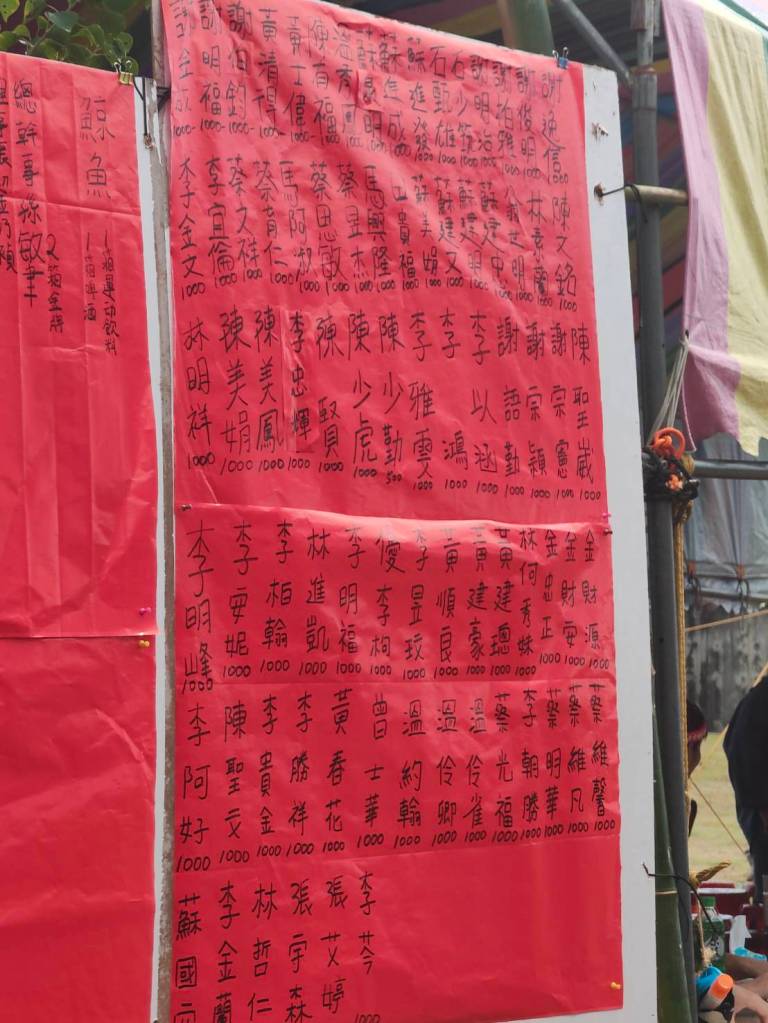 謝俊明
謝明治 1000
石少筑 1000
蘇進發 1000
陳有福 1000-
黃士偉 1000-
黃清得 1000-
謝伯鈞 1000-
謝明福 1000-
謝金成 1000-
陳文銘 1000
林素蘭 1000
翁世明 1000
蘇建中 1000
蘇建明 1000
蘇建文 1000
蘇美娟 1000
貴福 1000
馬興隆 1000
蔡昱杰 1000
蔡思敏 1000
馬阿淑 1000
蔡育仁 1000
蔡文祥 1000
李宜倫 1000
李金文 1000
陳聖崴 1000
謝宗憲 1000
謝宗穎 1000
謝語勤 1000
李以涵 1000
李鴻 1000
李雅雯 1000
陳少勤 500
陳少虎 1000
陳賢 1000
李忠輝 1000
陳美鳳 1000
陳美娟 1000
林明祥 1000
金財源 1000
金財安 1000
金忠正 1000
林何秀妹 1000
黃建璁 1000
黃建豪 1000
黃順良 1000
李昱玟 1000
優李枸 1000
李明福 1000
林進凱 1000
李柏翰 1000
李安妮 1000
李明峰 1000
蔡維馨 1000
蔡維凡 1000
蔡明華 1000
李朝勝 1000
蔡光福 1000
溫伶雀 1000
溫伶卿 1000
溫約翰 1000
曾士華 1000
黃春花 1000
李勝祥 1000
李貴金 1000
陳聖文 1000
李阿好 1000
李芩 1000
張艾婷
張宇森
林哲仁
李金蘭
蘇國
鯨魚
1箱運動飲料
1箱啤酒
總幹事孫敏華
2箱金牌